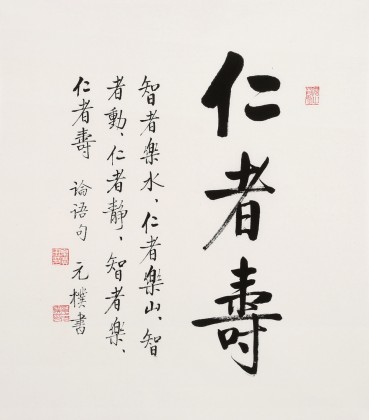 仁者壽
智者樂水、仁者樂山、智
者動、仁者靜、智者樂、
仁者壽 論语句 元樸書